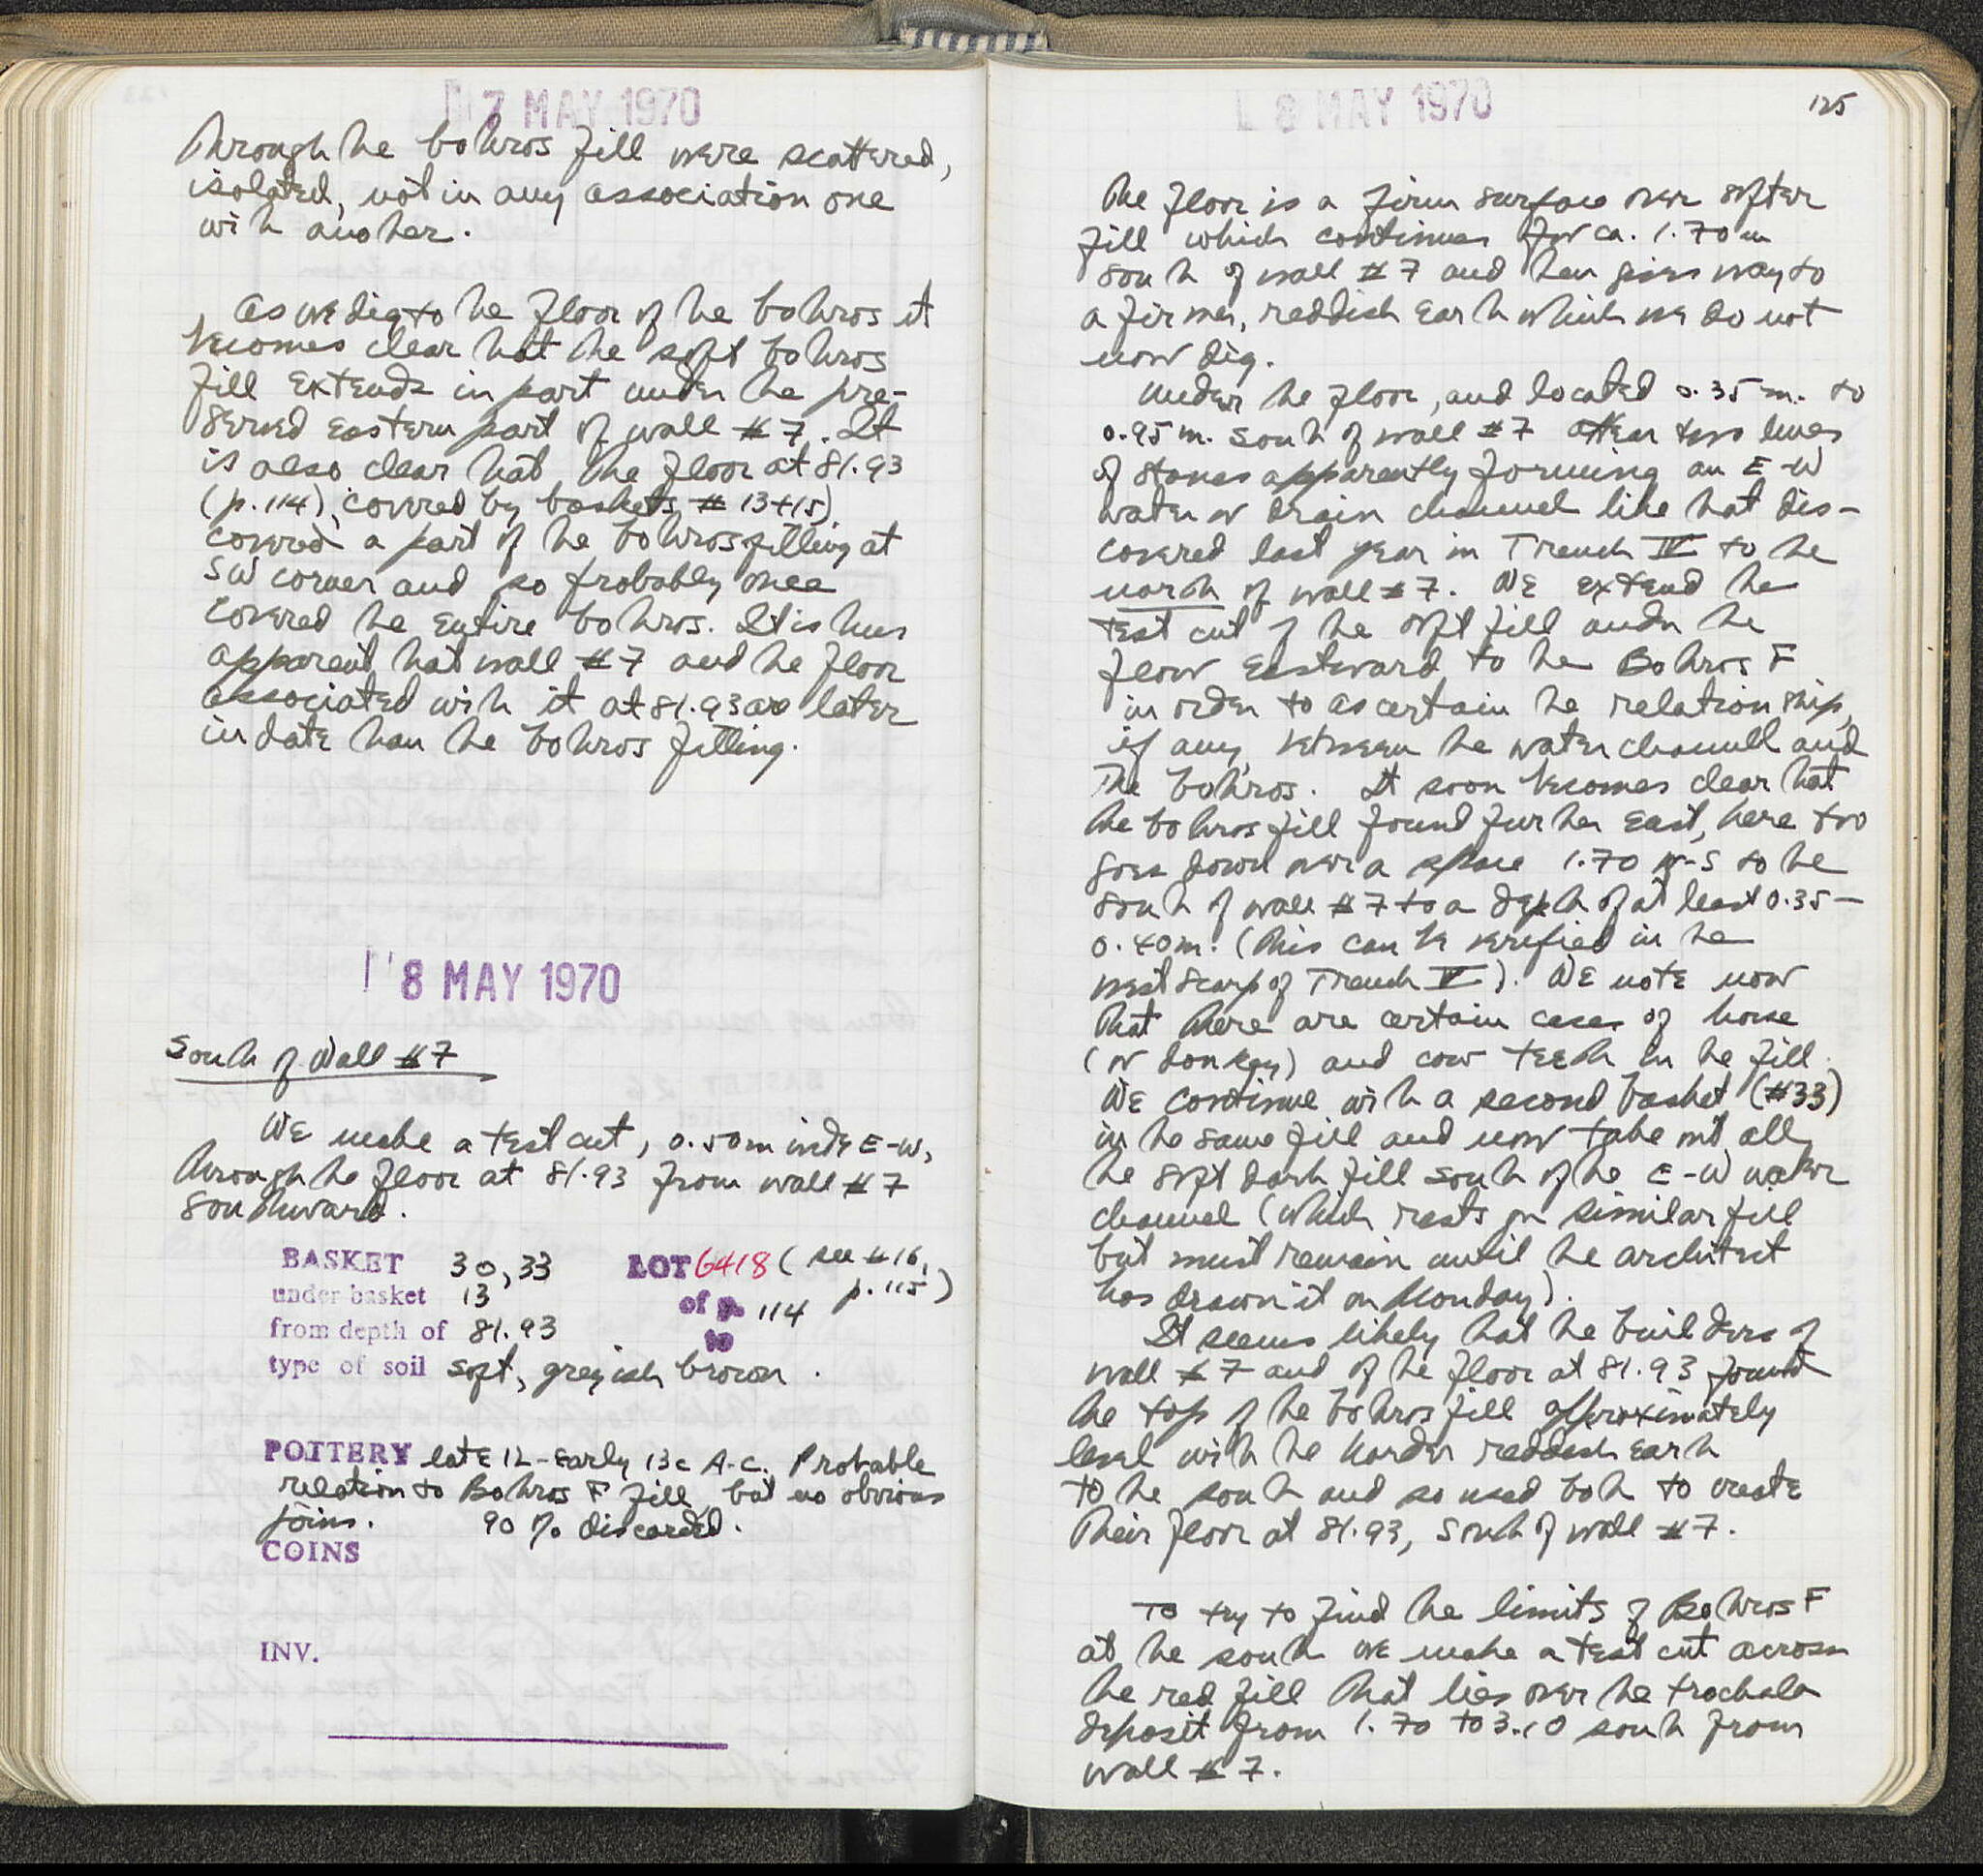 7 MAY 1970
through the bothros fill were scattered,
isolated, not in any association one
with another.
As we dig to the floor of the bothros it
becomes clear that the soft bothros
fill extends in part under the pre-
served eastern part of wall #7. It
is also clear that the floor at 81.93
(p. 114), covered by baskets # 13+15),
covered a part of the bothros filling at
SW corner and so probably once
covered the entire bothros. It is thus
apparent that wall #7 and the floor
associated with it at 81.93 are later
in date than the bothros filling.
8 MAY 1970
South of Wall #7
We make a test cut, 0.50m wide E-W,
through the floor at 81.93 from wall #7
southward.
BASKET 30, 33 LOT 6418 (see #16,
under basket 13 of p. 114 p. 115)
from depth of 81.93 to
type of soil soft, greyish brown.
POTTERY late 12 - early 13c A.C. Probable
relation to Bothros F fill, but no obvious
joins. 90% discarded.
COINS
INV.
8 MAY 1970
125
The floor is a firm surface over softer
fill which continues for ca. 1.70m
south of wall #7 and then gives way to
a firmer, reddish earth which we do not
now dig.
Under the floor, and located 0.35m. to
0.95m. south of wall #7 appear two lines
of stones apparently forming an E-W
water or drain channel like that dis-
covered last year in Trench IV to the
north of wall #7. We extend the
test cut of the soft fill under the
floor eastward to the Bothros F
in order to ascertain the relationship,
if any, between the water channel and
the bothros. It soon becomes clear that
the bothros fill found further east, here too
goes down over a space 1.70 N-S to the
south of wall #7 to a depth of at least 0.35-
0.40m. (This can be verified in the
west scarp of Trench V). We note now
that there are certain cases of horse
(or donkey) and cow teeth in the fill.
We continue with a second basket (#33)
in the same fill and now take out all
the soft dark fill south of the E-W water
channel (which rests on similar fill
but must remain until the architect
has drawn it on Monday).
It seems likely that the builders of
wall #7 and of the floor at 81.93 found
the top of the bothros fill approximately
level with the harder reddish earth
to the south and so used both to create
their floor at 81.93, south of wall #7.
To try to find the limits of Bothros F
at the south we make a test cut across
the red fill that lies over the trochala
deposit from 1.70 to 3.10 south from
wall #7.